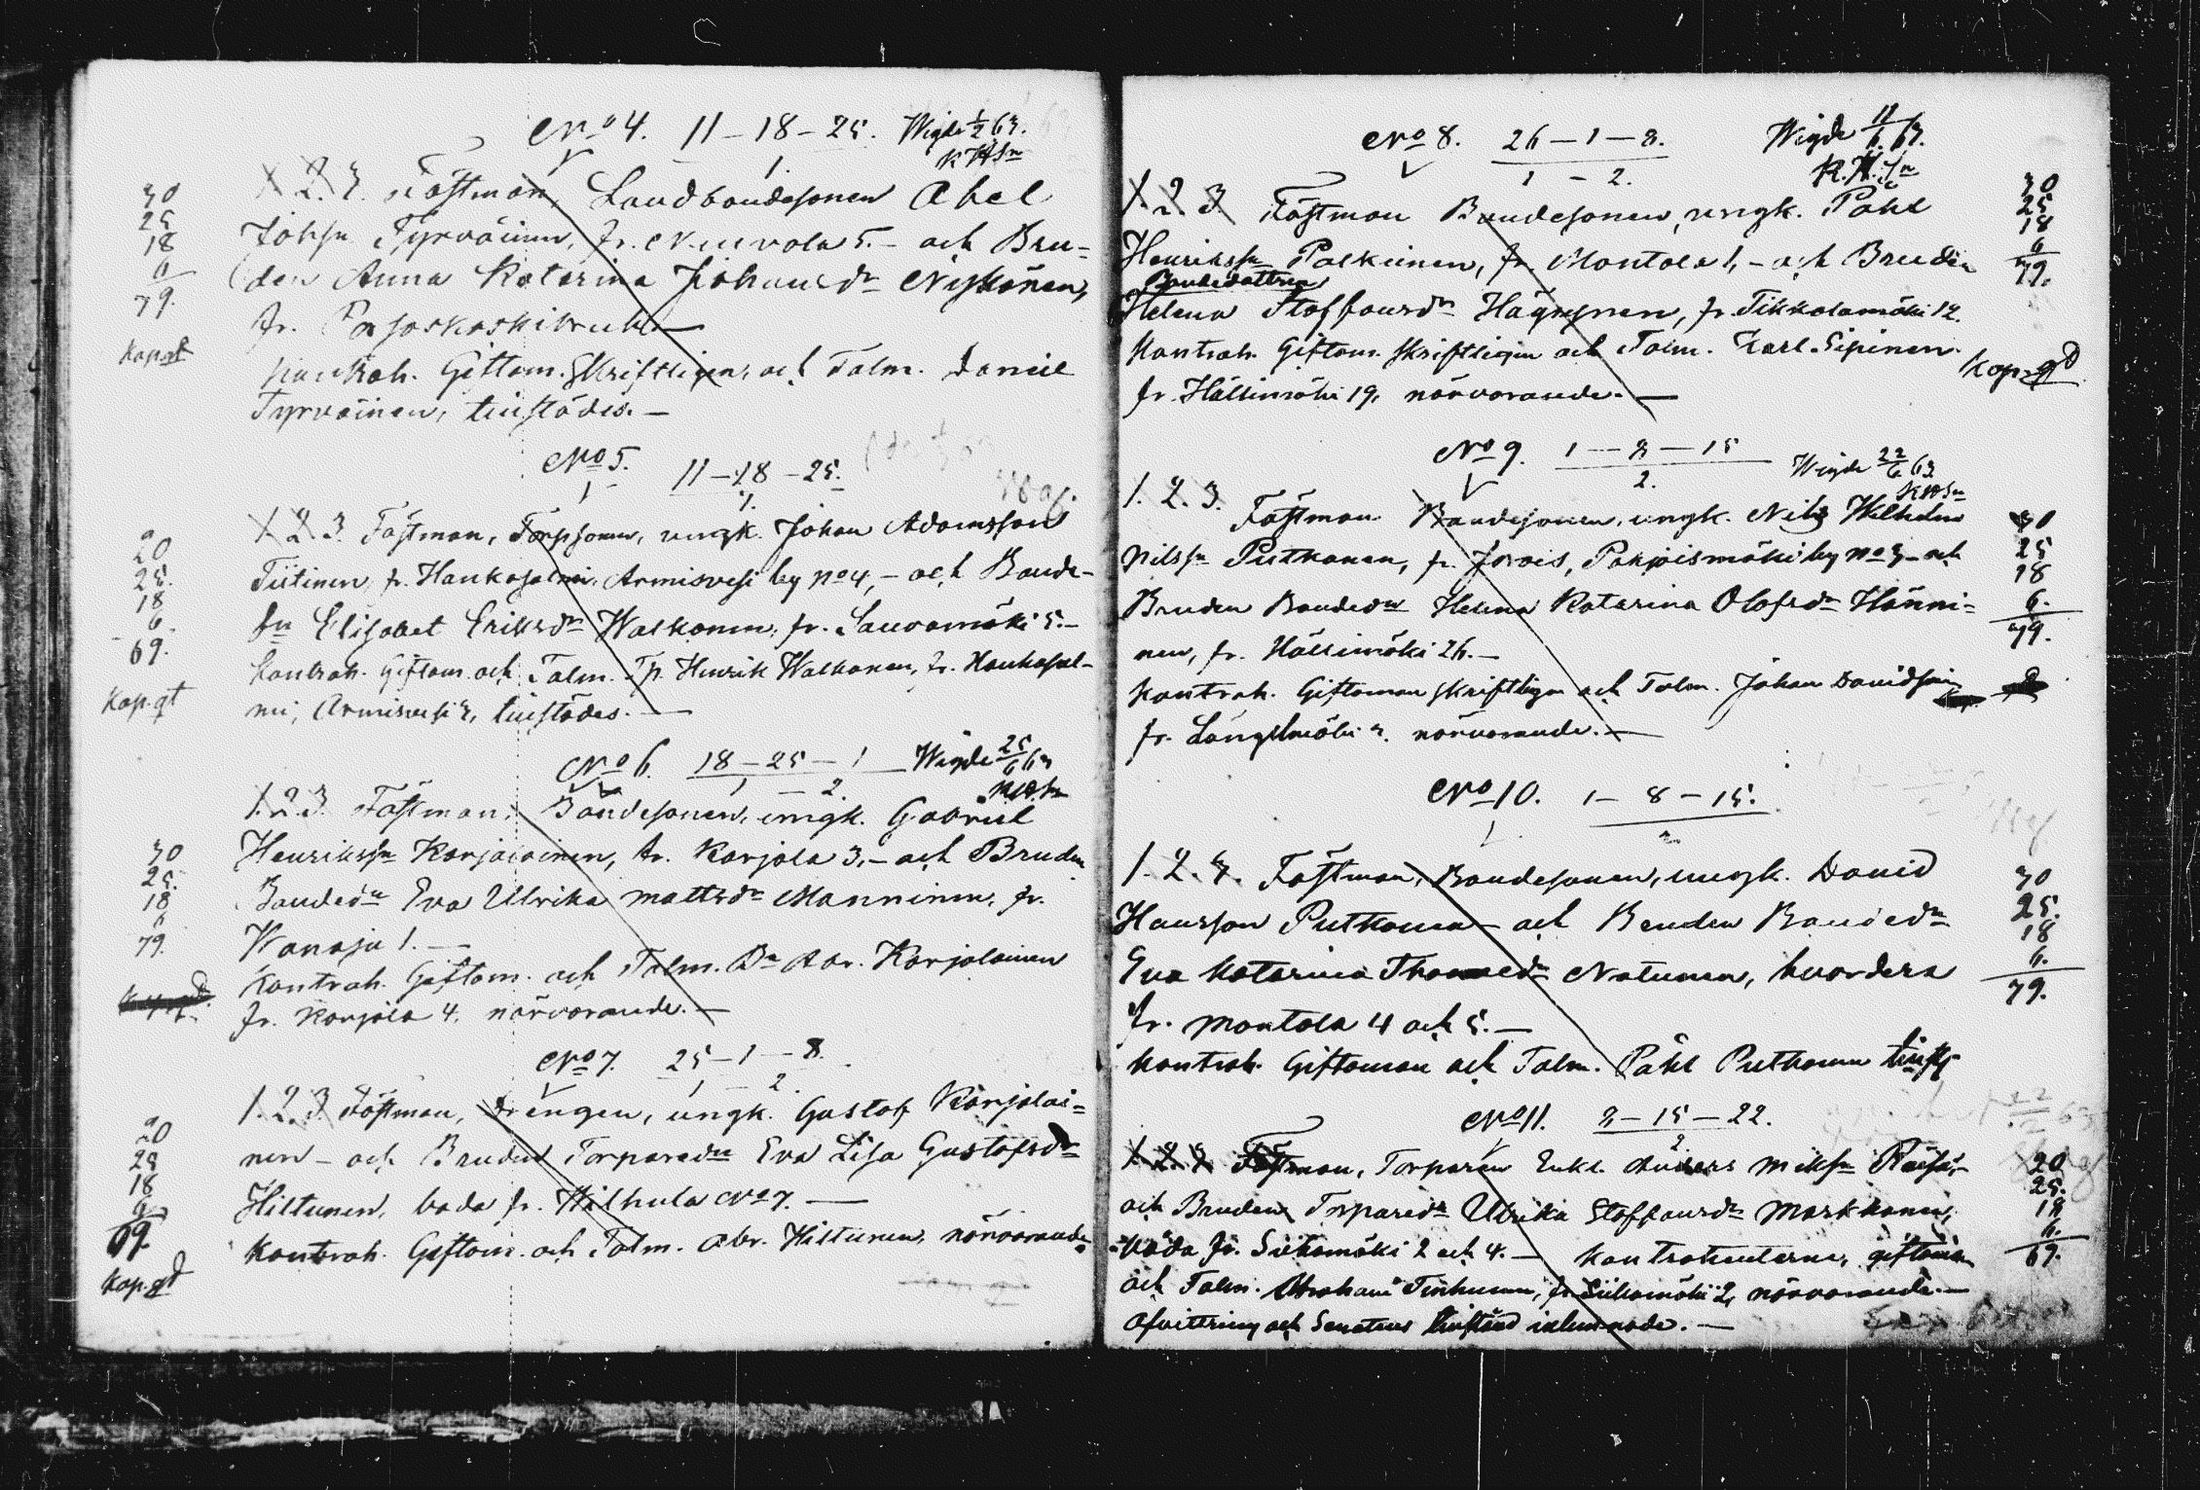 No 4. 11–18–25. Wigde 1/2 63.
1.
1. 2. 3. Fästman, Landbondesonen Abel
Johsn Tyrväinen, fr. Niuvola 5. – och Bru-
den Anna Katarina Johansdr Niskanen,
fr.
Kontrah. Giftom. skriftligen, och Talm. Daniel
Tyrväinen, tillstädes. –
30
25
18
6
79.
Kop. gt
No 5. 11–18–25.
1.
1. 2. 3. Fästman, Torpsonen, ungk. Johan Adamsson
Tiitinen, fr. Hankasalmi, Armisvesi by No 4, – och Bonde-
dn Elisabet Eriksdr Walkonen, fr. Sauvamäki 5. –
Kontrah. giftom. och Talm. Tp. Henrik Walkonen, fr. Hankasal-
mi, Armisvesi 3, tillstädes. –
20
25.
18
6.
69.
Kop. gt
No 6. 18–25–1 Wigde 25/6 63
1 – 2.
1. 2. 3. Fästman, Bondesonen, ungk. Gabriel
Henrikssn Karjalainen, fr. Karjola 3, – och Bruden
Bondedn Eva Ulrika Mattsdr Manninen, fr.
Wanaja 1. –
Kontrah. Giftom. och Talm. Bn Abr. Karjalainen
fr. Karjola 4. närvarande. –
30
25.
18
6
79.
No 7. 25–1–8.
1 – 2.
1. 2. 3. Fästman, Drengen, ungk. Gustaf Karjalai-
nen – och Bruden Torparedn Eva Lisa Gustafsdr
Hiltunen, bada fr. Hilhula No 7. –
Kontrah. Giftom. och Talm. Abr. Hiltunen, närvarande.
20
25
18
6
69.
Kop. gd
No 8. 26–1–8. Wigde 11/6. 63.
1 – 2. K. H. Sn
1. 2. 3 Fästman Bondesonen, ungk. Påhl
Henrikssn Palkinen, fr. Montola 1, – och Bruden
Bondedottren
Helena Staffansdr Häyrynen, fr. Tikkalamäki 12.
Kontrah. Giftom. skriftligen och Talm. Karl Sipinen.
fr. Hällinmäki 19, närvarande. –
30
25
18
6
79.
Kop. gd
No 9. 1–8–15 Wigde 22/6 63
2.
1. 2. 3. Fästman Bondesonen, ungk. Nils Wilhelm
Nilssn Putkonen, fr. Jorois, Pohjoismäki by No 3 – och
Bruden Bondedn Helena Katarina Olofsdr Hänni-
nen, fr. Hällinmäki 26. –
Kontrah. Giftoman skriftligen och Talm. Johan Davidsson
fr. Längelmäki 2. närvarande. –
30
25
18
6.
79.
No 10. 1–8–15.
2.
1. 2. 3. Fästman, Bondesonen, ungk. David
Hansson Putkonen – och Bruden Bondedn
Eva Katarina Thomasdr Natunen, hvardera
fr. Montola 4 och 5. –
Kontrah. Giftoman och Talm. Påhl Putkonen tillst.
30
25.
18
6.
79.
No 11. 8–15–22.
2
1. 2. 3. Fästman, Torparen Enkl. Anders Mikssn Räisä-
och Bruden Torparedn Ulrika Staffansdr Markkanen,
båda fr. Siikamäki 2 och 4. – Kontrahenterne, giftoman
och Talm. Abraham Tinkunen, fr. Siikamäki 2, närvarande. –
Afvittring och Senatens tillstånd inlemnade. –
20
25.
18
6.
69.